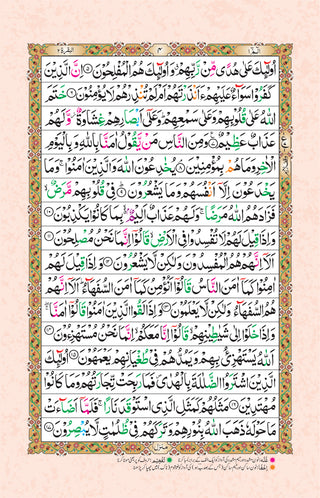 الٓمّٓ ١ ٤ البقرة ٢
اُولٰٓئِكَ عَلٰى هُدًى مِّنْ رَّبِّهِمْ وَاُولٰٓئِكَ هُمُ الْمُفْلِحُوْنَ ۝۵ اِنَّ الَّذِيْنَ
كَفَرُوْا سَوَآءٌ عَلَيْهِمْ ءَاَنْذَرْتَهُمْ اَمْ لَمْ تُنْذِرْهُمْ لَا يُؤْمِنُوْنَ ۝۶ خَتَمَ
اللّٰهُ عَلٰى قُلُوْبِهِمْ وَعَلٰى سَمْعِهِمْ وَعَلٰٓى اَبْصَارِهِمْ غِشَاوَةٌ وَّلَهُمْ
عَذَابٌ عَظِيْمٌ ۝۷ وَمِنَ النَّاسِ مَنْ يَّقُوْلُ اٰمَنَّا بِاللّٰهِ وَبِالْيَوْمِ
الْاٰخِرِ وَمَا هُمْ بِمُؤْمِنِيْنَ ۝۸ يُخٰدِعُوْنَ اللّٰهَ وَالَّذِيْنَ اٰمَنُوْا وَمَا
يَخْدَعُوْنَ اِلَّآ اَنْفُسَهُمْ وَمَا يَشْعُرُوْنَ ۝۹ فِيْ قُلُوْبِهِمْ مَّرَضٌ
فَزَادَهُمُ اللّٰهُ مَرَضًا وَلَهُمْ عَذَابٌ اَلِيْمٌۢ بِمَا كَانُوْا يَكْذِبُوْنَ ۝۱۰
وَاِذَا قِيْلَ لَهُمْ لَا تُفْسِدُوْا فِي الْاَرْضِ قَالُوْٓا اِنَّمَا نَحْنُ مُصْلِحُوْنَ ۝۱۱
اَلَآ اِنَّهُمْ هُمُ الْمُفْسِدُوْنَ وَلٰكِنْ لَّا يَشْعُرُوْنَ ۝۱۲ وَاِذَا قِيْلَ لَهُمْ
اٰمِنُوْا كَمَآ اٰمَنَ النَّاسُ قَالُوْٓا اَنُؤْمِنُ كَمَآ اٰمَنَ السُّفَهَآءُ اَلَآ اِنَّهُمْ
هُمُ السُّفَهَآءُ وَلٰكِنْ لَّا يَعْلَمُوْنَ ۝۱۳ وَاِذَا لَقُوا الَّذِيْنَ اٰمَنُوْا قَالُوْٓا اٰمَنَّا
وَاِذَا خَلَوْا اِلٰى شَيٰطِيْنِهِمْ قَالُوْٓا اِنَّا مَعَكُمْ اِنَّمَا نَحْنُ مُسْتَهْزِءُوْنَ ۝۱۴
اَللّٰهُ يَسْتَهْزِئُ بِهِمْ وَيَمُدُّهُمْ فِيْ طُغْيَانِهِمْ يَعْمَهُوْنَ ۝۱۵ اُولٰٓئِكَ
الَّذِيْنَ اشْتَرَوُا الضَّلٰلَةَ بِالْهُدٰى فَمَا رَبِحَتْ تِّجَارَتُهُمْ وَمَا كَانُوْا
مُهْتَدِيْنَ ۝۱۶ مَثَلُهُمْ كَمَثَلِ الَّذِي اسْتَوْقَدَ نَارًا فَلَمَّآ اَضَآءَتْ
مَا حَوْلَهٗ ذَهَبَ اللّٰهُ بِنُوْرِهِمْ وَتَرَكَهُمْ فِيْ ظُلُمٰتٍ لَّا يُبْصِرُوْنَ ۝۱۷
منزل